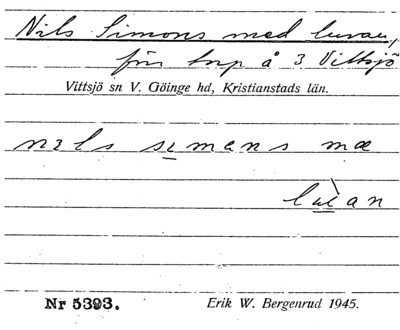 Nils Simons med luvan,
för torp å 3 Vittsjö
Vittsjö sn V. Göinge hd, Kristianstads län.
nɪls sɪmans mæ
lùan
Nr 5393. Erik W. Bergenrud 1945.